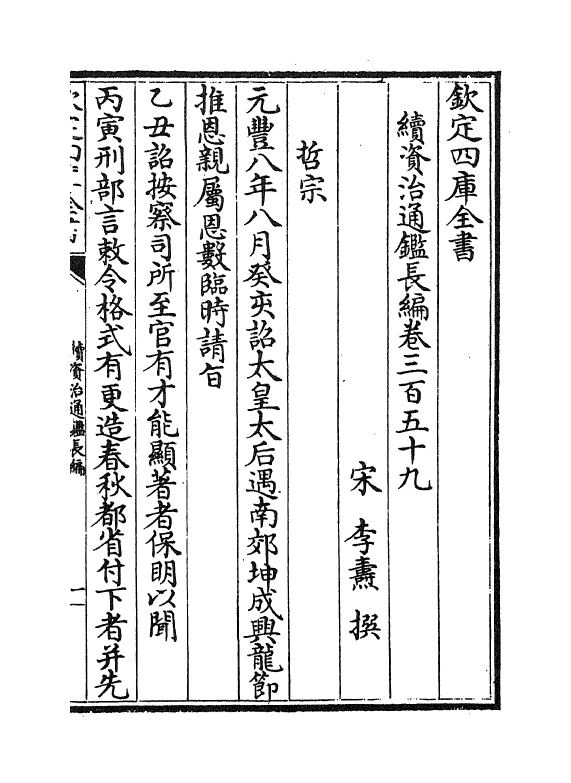 欽定四庫全書
續資治通鑑長編卷三百五十九
宋 李燾 撰
哲宗
元豐八年八月癸亥詔太皇太后遇南郊坤成興龍節
推恩親屬恩數臨時請旨
乙丑詔按察司所至官有才能顯著者保明以聞
丙寅刑部言敕令格式有更造春秋都省付下者并先
續資治通鑑長編